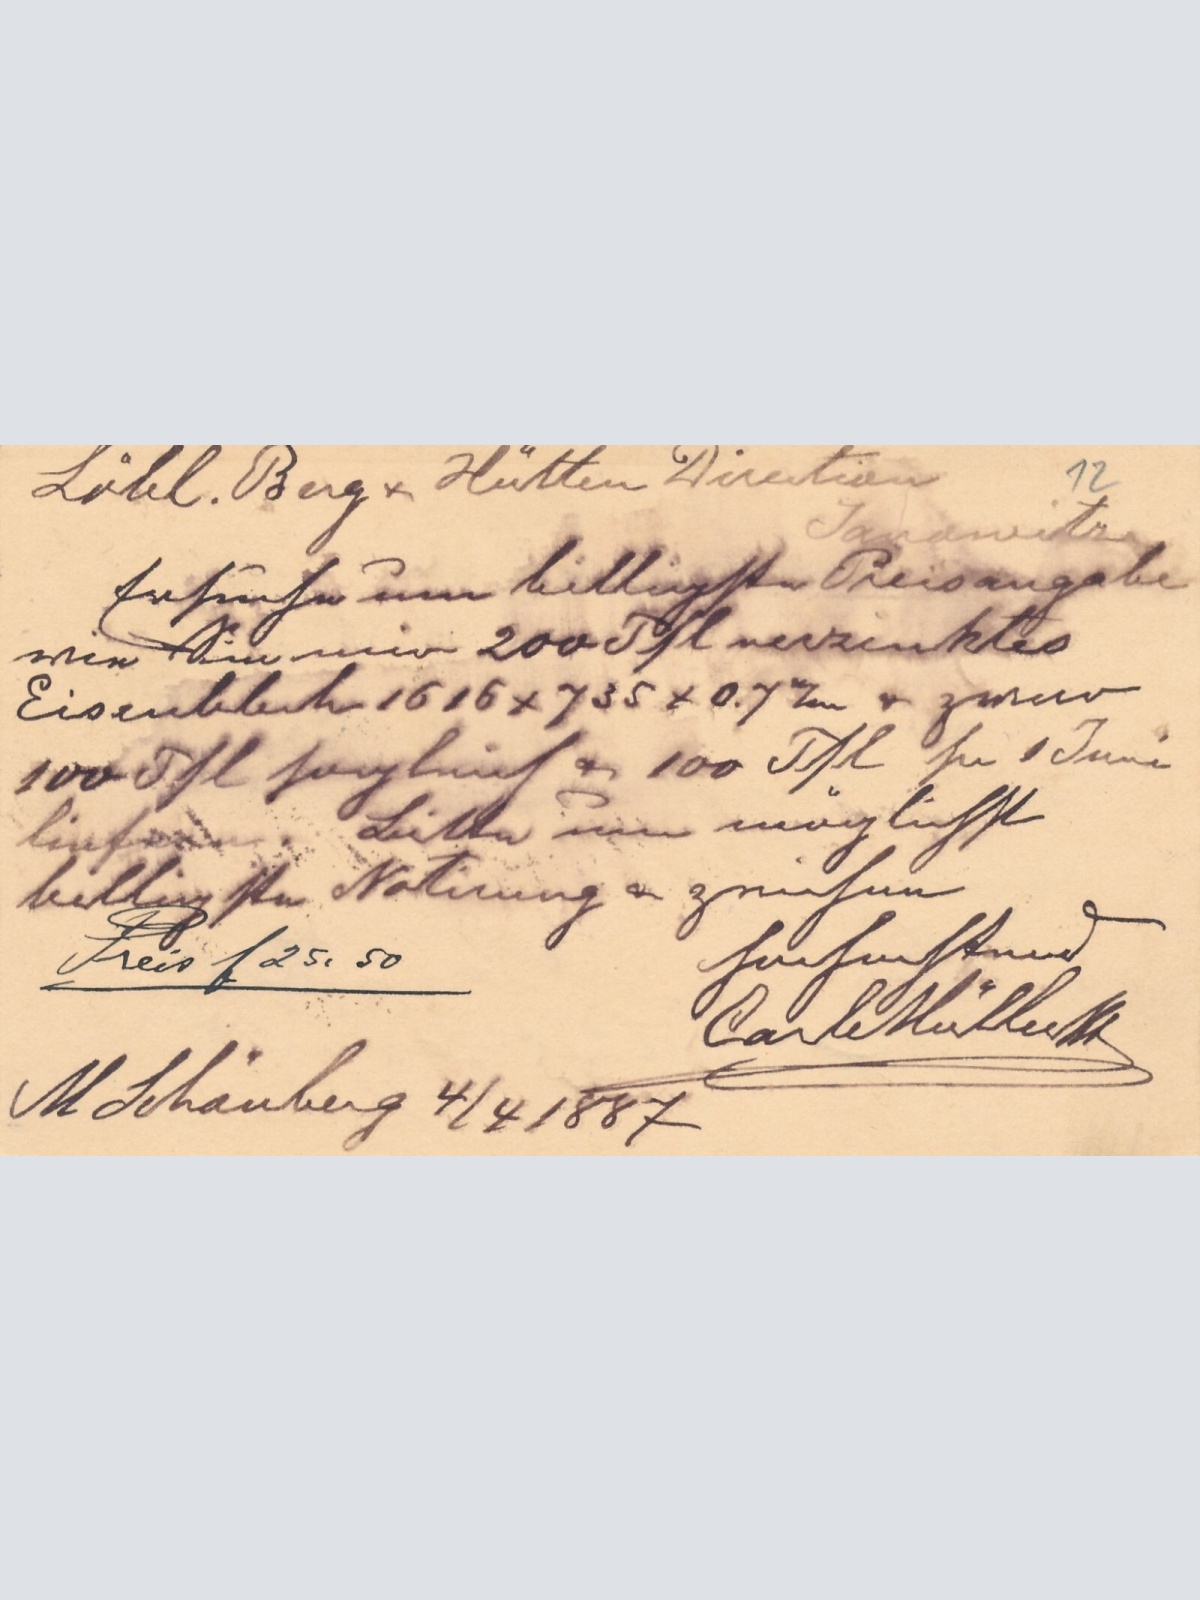 Löbl. Berg & Hütten Direction
12
Janowitz
Ersuche um billigsten Preisangabe
wie Sie mir 200 Tfl verzinktes
Eisenblech 1616 x 735 x 0.7 m/m & zwar
100 Tfl sogleich & 100 Tfl pr 1 Juni
liefern. Bitte um möglichst
billigste Notirung & zeichne
Preis f 25. 50
hochachtend
Carl
M Schönberg 4/4 1887